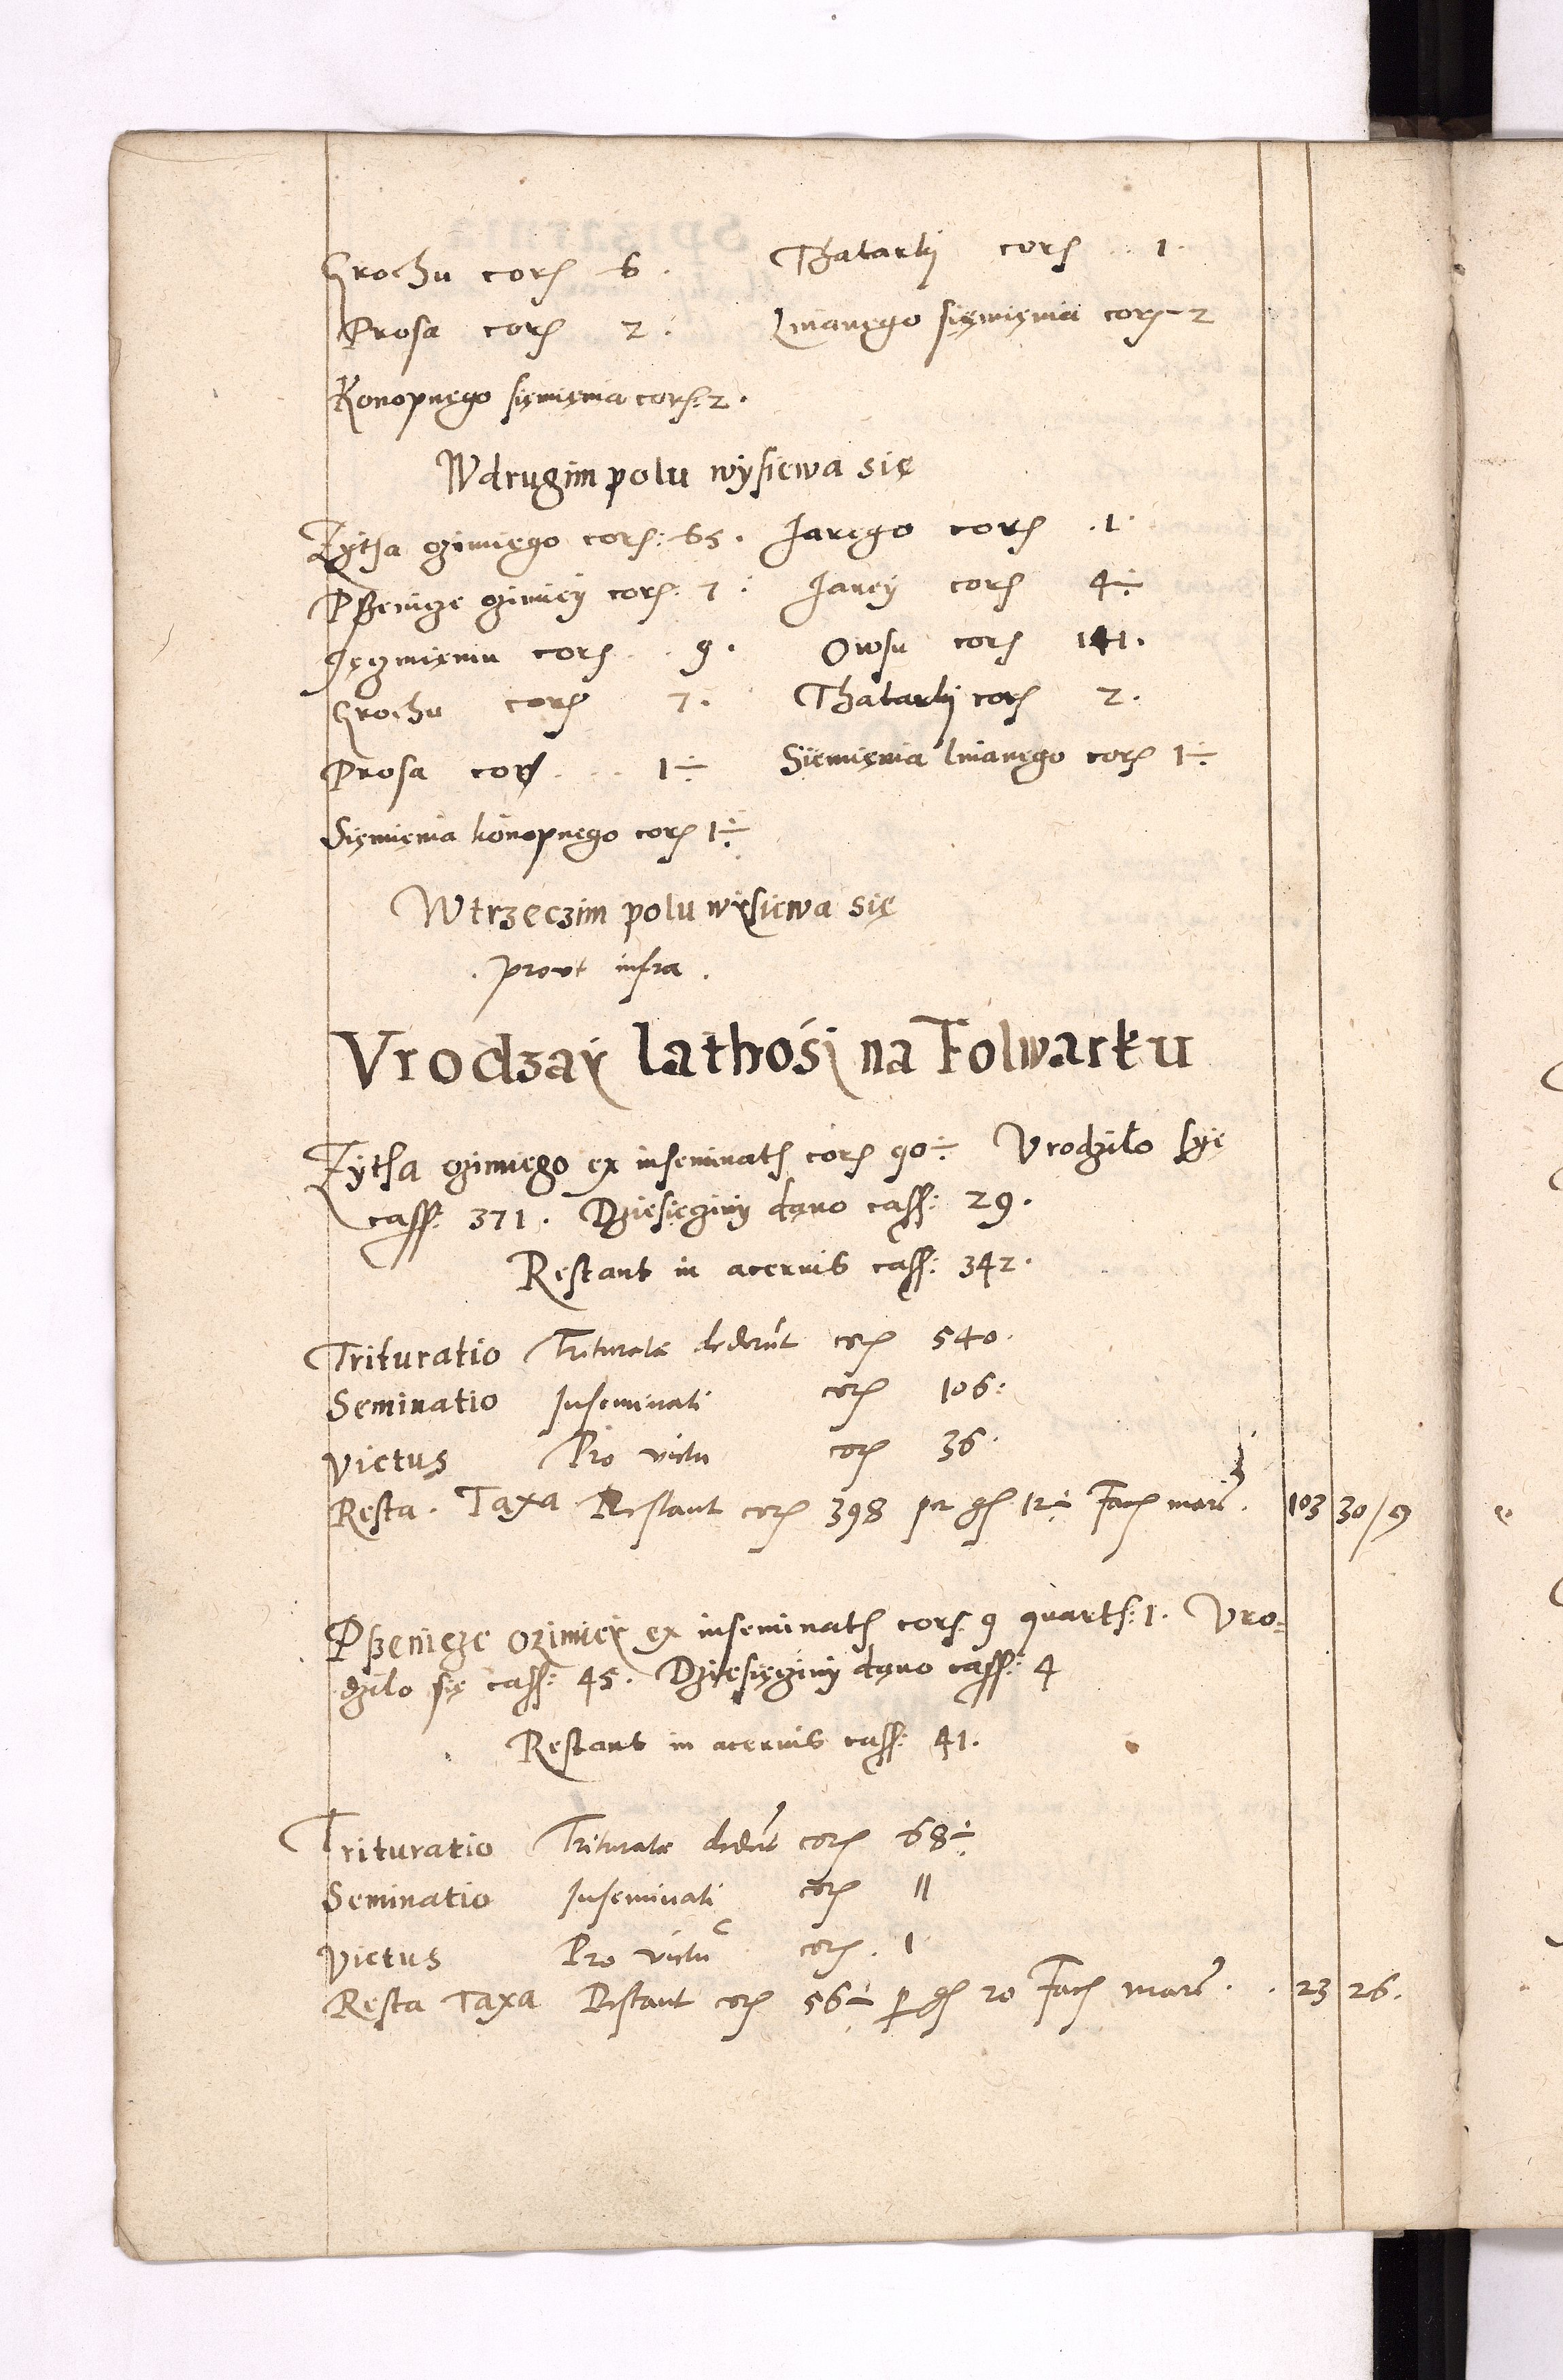 Grochu cors 6. Thatarky cors 1.
Prosa cors 2. Lnianęgo sięmięnia cors 2
Konopnęgo sięmięnia cors: 2.
Wdrugim polu wysiewa się
Zytha ozimięgo cors: 65. Jarego cors 1.
Pszenicze ozimey cors: 7 ÷ Jarey cors 4÷
Jęczmięniu cors 9. Owsu cors 141.
Grochu cors 7. Thatarky cors 2.
Prosa cors 1÷ Siemięnia lnianęgo cors 1÷
Sięmięnia konopnęgo cors 1÷
Wtrzeczim polu wysiewa się
. prout infra .
Vrodzaÿ lathośi na Folwarku
Zytha ozimięgo ex inseminaths cors 90÷ Vrodziło syę
cass: 371. Dziesięciny dąno cass: 29.
Restant in acervis cass: 342.
Trituratio Triturata dederūt cors 540.
Seminatio Inseminati cors 106:
Victus Pro victu cors 36.
Resta. Taxa Restant cors 398 per gs 12÷ Facs marc. 103 30/9
Pszenicze ozimieÿ ex inseminaths cors 9 quarts: 1. Vro=
dziło się cass: 45. Dziesięciny dąno cass: 4
Restant in acervis cass: 41.
Trituratio Triturata dederūt cors 68÷
Seminatio Inseminati cors 11
Victus Pro victu cors. 1
Resta Taxa Restant cors 56÷ p gs 20 Facs marc. 23 26.